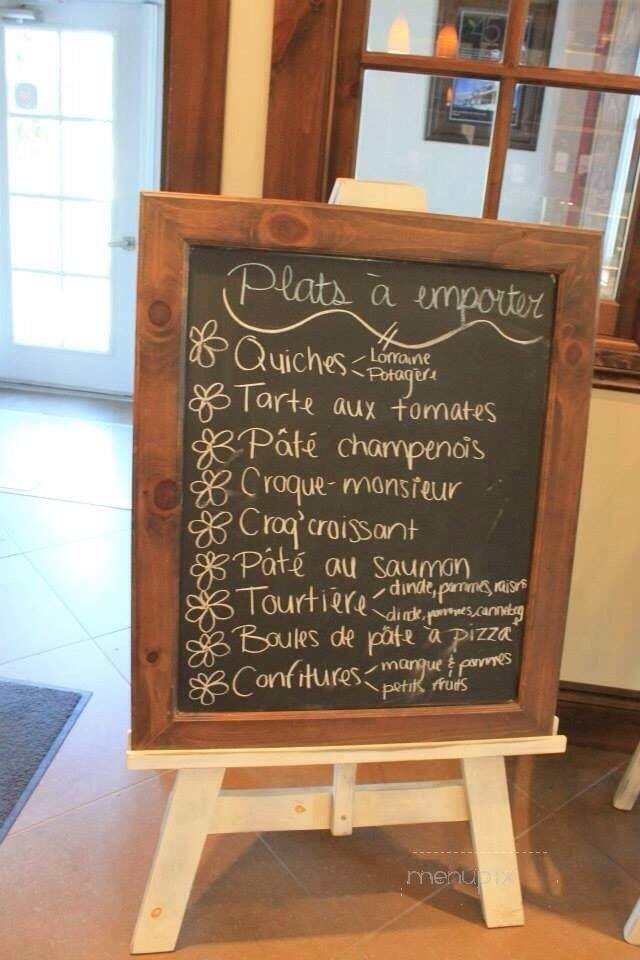 Plats à emporter
Quiches Lorraine
Potagère
Tarte aux tomates
Pâté champenois
Croque-monsieur
Croq'croissant
Pâté au saumon
Tourtière dinde, pommes, raisins
dinde, pommes, canneberg
Boules de pâte à pizza
Confitures mangue & pommes
petits fruits
menupix